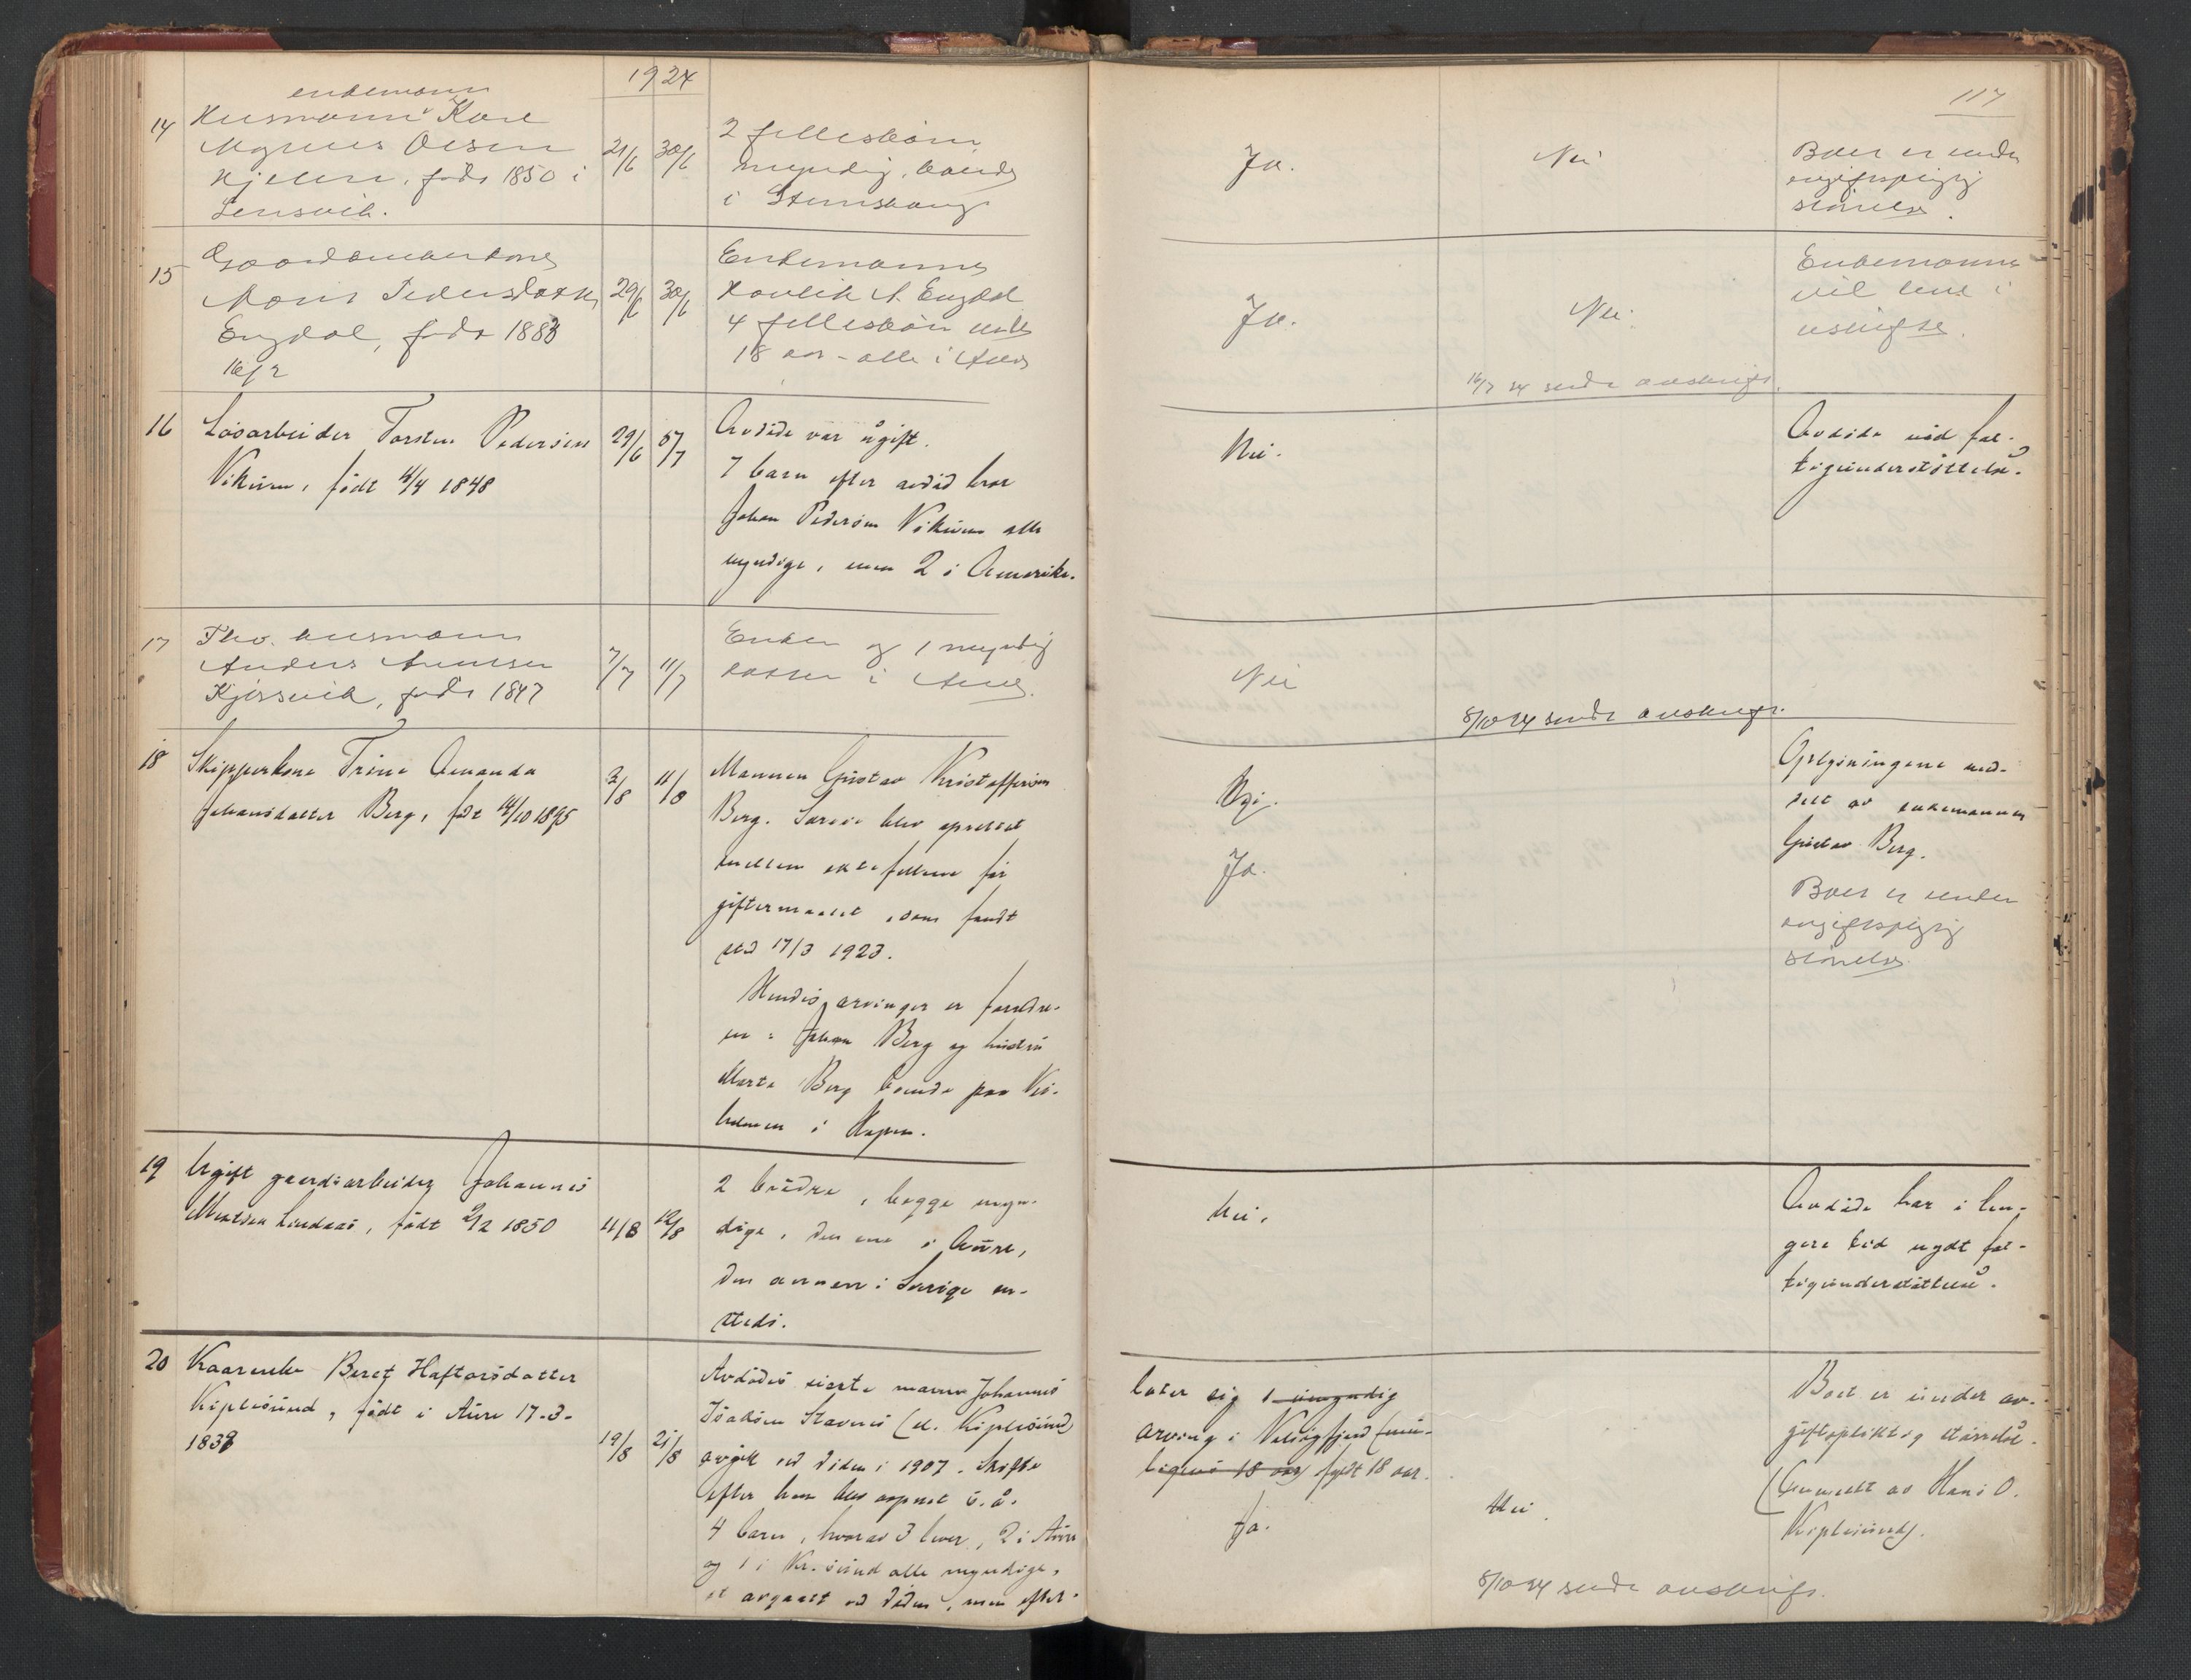 1924
117
enkemann
14 Husmann Karl
Magnus Olsen
født 1850 i
Lensvik.
21/6 30/6
2 fellesbarn
myndig, boende
i
Ja.
Nei
Boet er under
avgiftspligtig
størrelse.
15 Gaardmandskone
Pedersdatter
Engdal, født 1883
16/2
29/6 30/6
Enkemannen
A. Engdal
4 fellesbarn under
18 aar - alle i Aure
Ja.
Nei.
Enkemannen
vil bli i
uskiftet.
16/7 24 sendt avskrift.
16 Løsarbeider Torsten Pedersen
født 4/4 1848
29/6 5/7
Avdøde var ugift.
7 barn efter avdød bror
Johan Pedersen alle
myndige, men 2 i Amerika.
Nei.
Avdøde nød fat-
tigunderstøttelse.
17 Fhv. husmann
Anders Arntsen
Kjørsvik, født 1847
7/7 11/7
Enken og 1 myndig
datter i Aure.
Nei
8/10 24 sendt avskrift.
18 Skipperkone Trine Amanda
Johansdatter Berg, født 14/10 1895
3/8 11/8
Mannen Gustav Kristoffersen
Berg. Særeie blev oprettet
mellem ektefellene før
giftermaalet, som fandt
sted 17/3 1923.
Hendes arvinger er foreldre-
ne: Johan Berg og hustru
Marta Berg boende paa
i Hopen.
Nei.
Ja.
Oplysningene med-
delt av enkemannen
Gustav Berg.
Boet er under
avgiftspligtig
størrelse.
19 Ugift gaardsarbeider Johannes
Mentsen Lindaas, født 2/2 1850
4/8 12/8
2 brødre, begge myn-
dige, den ene i Aure,
den annen i Sverige en-
steds.
Nei.
Avdøde har i len-
gere tid nydt fat-
tigunderstøttelse.
20 Kaarenke Beret Haftorsdatter
Kiplesund, født i Aure 17-3-
1838
19/8 21/8
Avdødes siste mann Johannes
Isaksen Stavnes (el. Kiplesund)
avgik ved døden i 1907. Skifte
efter ham blev aapnet s. å.
4 barn, hvorav 3 lever, 2 i Aure
og 1 i Kr.sund alle myndige,
et avgaatt ved døden, men efter-
later sig 1 umyndig
arving i Valsøyfjord (mu-
ligens 18 aar) fyldt 18 aar.
Ja.
Nei
Boet er under av-
giftspliktig størrelse.
(Anmeldt av Hans O.
Kiplesund).
8/10 24 sendt avskrift.